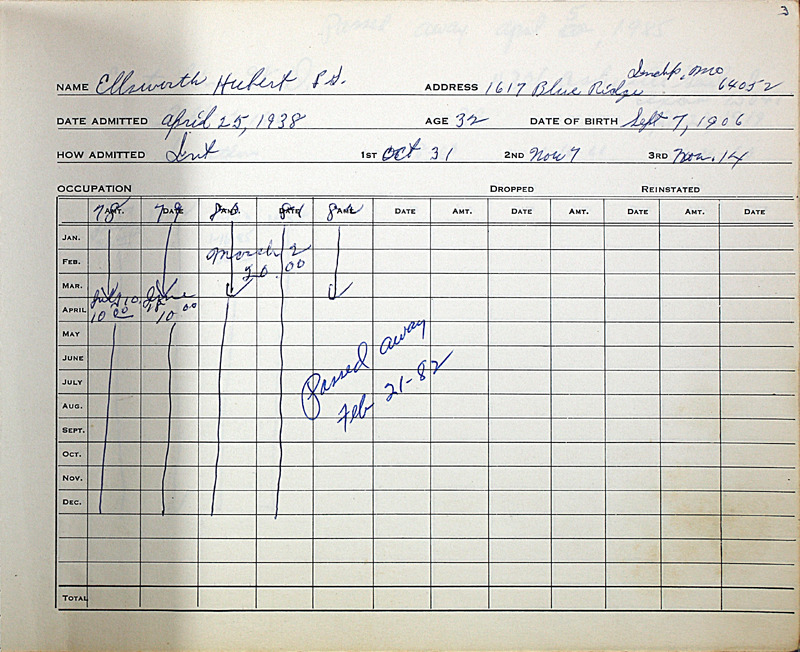 3
Passed away april 5, 1985
Indep, mo
NAME Ellsworth Hubert P.S. ADDRESS 1617 Blue Ridge 64052
DATE ADMITTED April 25, 1938 AGE 32 DATE OF BIRTH Sept 7, 1906
HOW ADMITTED Init 1ST Oct 31 2ND Nov 7 3RD Nov. 14
OCCUPATION DROPPED REINSTATED
78 79 80 81 82
AMT. DATE AMT. DATE AMT. DATE AMT. DATE AMT. DATE AMT. DATE
JAN.
FEB. March 2
20.00
MAR.
July 10, June
APRIL 10 00 10 00
MAY
JUNE Passed away
JULY
AUG. Feb 21-82
SEPT.
OCT.
NOV.
DEC.
TOTAL